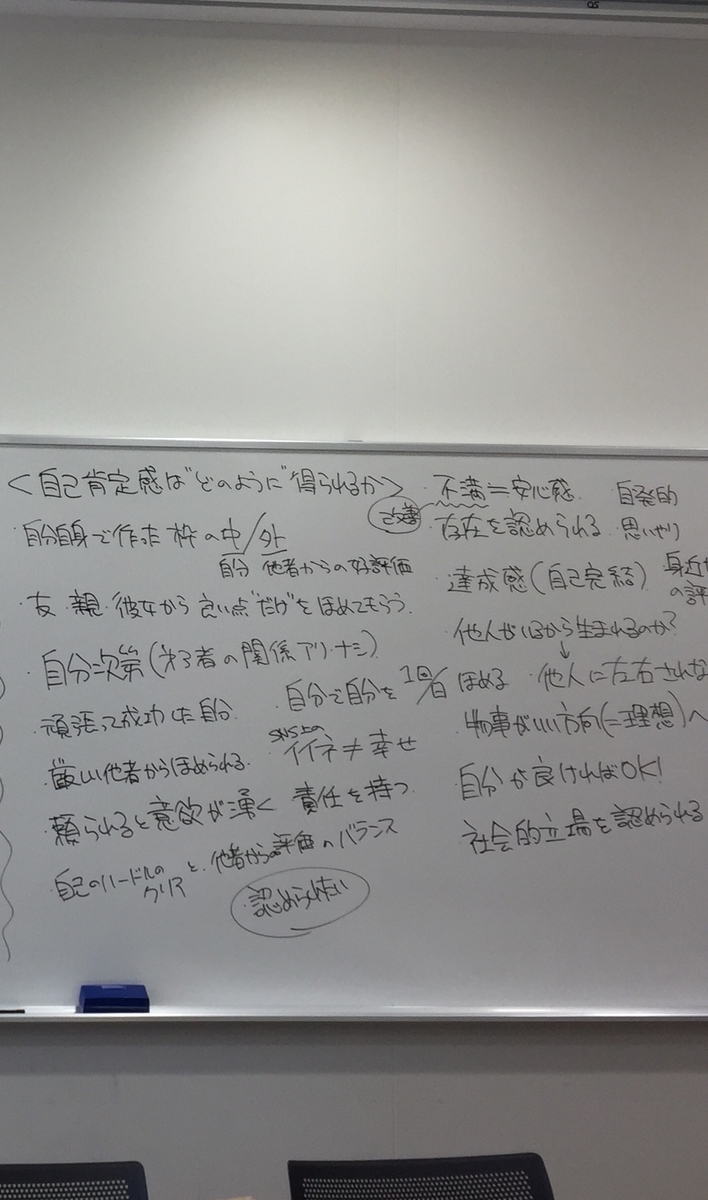 <自己肯定感は"どのように"得られるか>
・自分自身で作った枠の中/外
自分 他者からの好評価
友・親・彼女から良い点"だけ"をほめてもらう.
・自分次第(第3者の関係アリ・ナシ)
頑張って成功した自分.
自分で自分を1回/日ほめる
・厳しい他者からほめられる.
SNS上の
イイネ≠幸せ
・頼られると意欲が湧く 責任を持つ.
・自己のハードルの
クリア
と、他者からの評価のバランス
認められたい
・不満=安心感. 自発的
改善
・存在を認められる 思いやり
・達成感(自己完結)
身近な
の評
・他人がいるから生まれるのか?
↓
・他人に左右されな
・物事がいい方向(=理想)へ
・自分が良ければOK!
・社会的立場を認められる